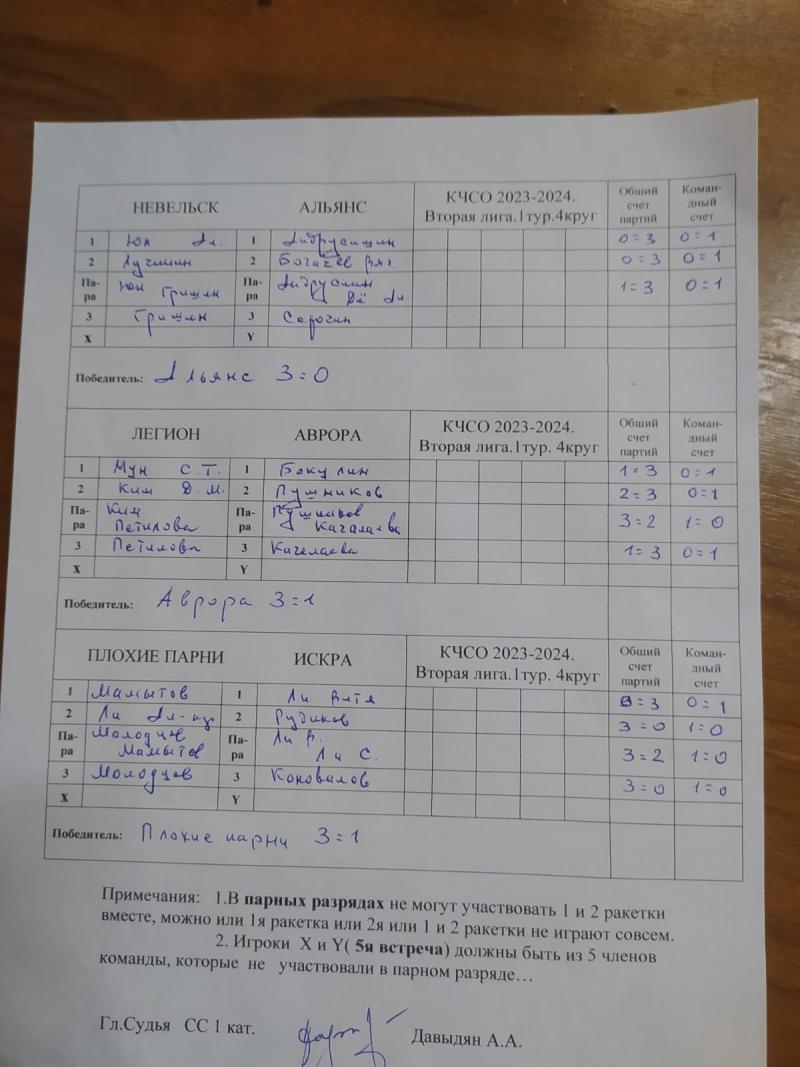 НЕВЕЛЬСК АЛЬЯНС КЧСО 2023-2024. Вторая лига.1тур.4круг Общий счет партий Коман-дный счет
1 Юн Ал. 1 0=3 0=1
2 Лучшин 2 Богачёв Вяч. 0=3 0=1
Па-ра Юн Гришин Па-ра 1=3 0=1
3 Гришин 3 Сорочин
X Y
Победитель: Альянс 3=0
ЛЕГИОН АВРОРА КЧСО 2023-2024. Вторая лига.1тур. 4круг Общий счет партий Коман-дный счет
1 Мун С.Т. 1 Бокулин 1=3 0=1
2 Ким Д.М. 2 Пушников 2=3 0=1
Па-ра Ким Петилова Па-ра Пушников Кагалаева 3=2 1=0
3 Петилова 3 Кагелаева 1=3 0=1
X Y
Победитель: Аврора 3=1
ПЛОХИЕ ПАРНИ ИСКРА КЧСО 2023-2024. Вторая лига.1тур. 4круг Общий счет партий Коман-дный счет
1 Мамытов 1 Ли Витя 0=3 0=1
2 Ли Ал-др 2 Рудиков 3=0 1=0
Па-ра Молодцов Мамытов Па-ра Ли В. Ли С. 3=2 1=0
3 Молодцов 3 Коновалов 3=0 1=0
X Y
Победитель: Плохие парни 3=1
Примечания: 1.В парных разрядах не могут участвовать 1 и 2 ракетки
вместе, можно или 1я ракетка или 2я или 1 и 2 ракетки не играют совсем.
2. Игроки X и Y( 5я встреча) должны быть из 5 членов
команды, которые не участвовали в парном разряде…
Гл.Судья СС 1 кат. Давыдян А.А.